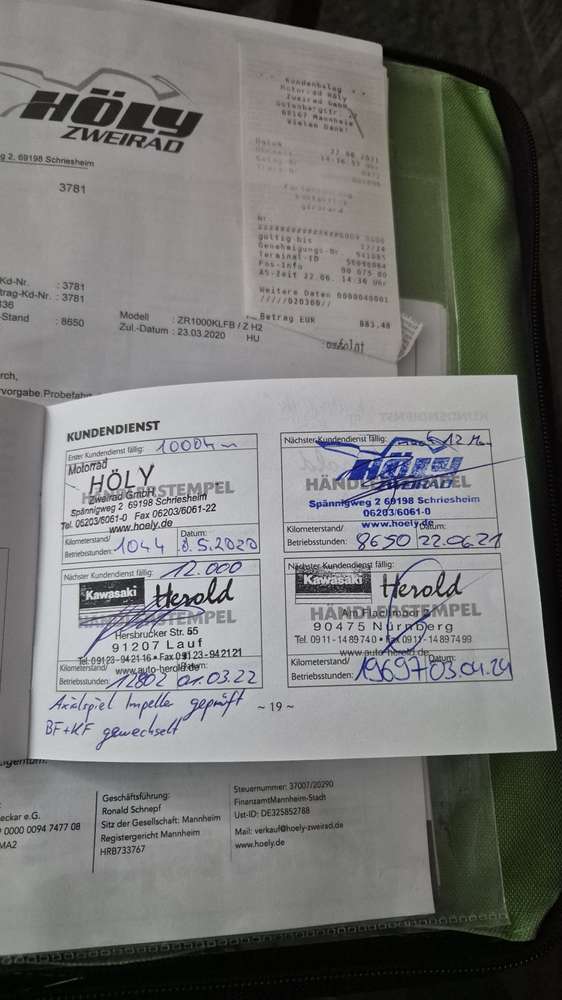 HÖLY
ZWEIRAD
g 2, 69198 Schriesheim
3781
Kundenbeleg
Motorrad Höly
Zweirad GmbH
68167 Mannheim
Vielen Dank!
gültig bis
Genehmigungs-Nr.
Terminal-ID
Pos-Info 00 075 00
AS-Zeit 22.06. 14:36 Uhr
Weitere Daten 0000040001
/////020300//
Betrag EUR 883,40
Kd-Nr. : 3781
trag-Kd-Nr. : 3781
-Stand : 8650
Modell : ZR1000KLFB / Z H2
Zul.-Datum : 23.03.2020 HU
rch,
vorgabe,Probefahr
KUNDENDIENST
Erster Kundendienst fällig: 1000km
Motorrad
HÖLY
HÄNDLERSTEMPEL
Zweirad GmbH
Spännigweg 2 69198 Schriesheim
Tel. 06203/6061-0 Fax 06203/6061-22
www.hoely.de
Kilometerstand/ Datum:
Betriebsstunden: 1044 8.5.2020
Nächster Kundendienst fällig: 12 Mon
HÖLY
HÄNDLERSTEMPEL
Spännigweg 2 69198 Schriesheim
06203/6061-0
www.hoely.de
Kilometerstand/ Datum:
Betriebsstunden: 8650 22.06.21
Nächster Kundendienst fällig: 12.000
Kawasaki Herold
HÄNDLERSTEMPEL
Hersbrucker Str. 55
91207 Lauf
Tel. 09123-94 21 16 • Fax 09123-942121
www.auto-herold.de
Kilometerstand/ Datum:
Betriebsstunden: 12802 01.03.22
Nächster Kundendienst fällig:
Kawasaki Herold
HÄNDLERSTEMPEL
90475 Nürnberg
Tel. 0911-1489740 • Fax 0911-14897499
www.auto-herold.de
Kilometerstand/ Datum:
Betriebsstunden: 19697 03.04.24
Axialspiel Impeller geprüft
BF+KF gewechselt
~ 19 ~
eckar e.G.
0000 0094 7477 08
MA2
Geschäftsführung:
Ronald Schnepf
Sitz der Gesellschaft: Mannheim
Registergericht Mannheim
HRB733767
Steuernummer: 37007/20290
FinanzamtMannheim-Stadt
Ust-ID: DE325852788
Mail: verkauf@hoely-zweirad.de
www.hoely.de